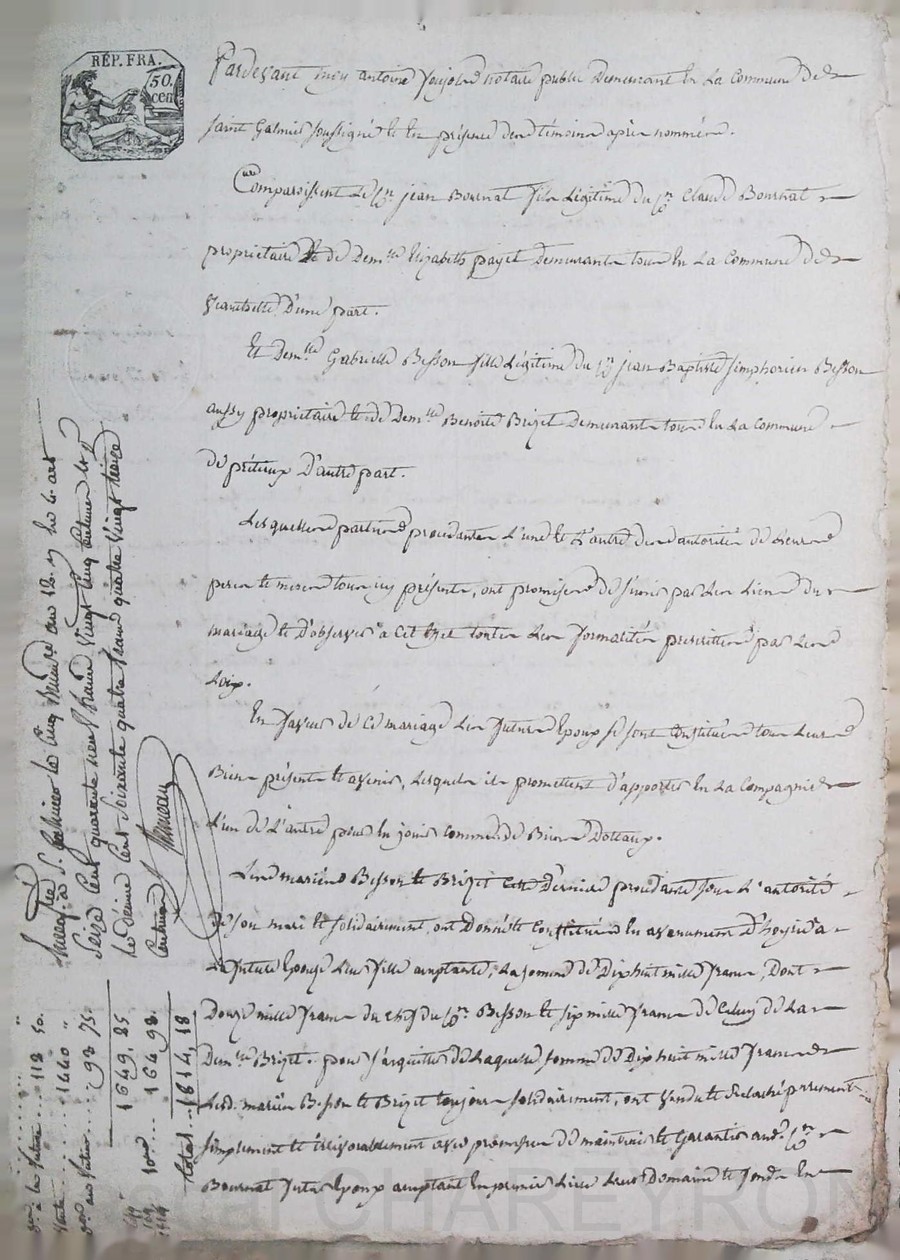 RÉP. FRA.
50.
cen
Pardevant moy antoine notaire public Demeurant En La Commune De
saint Galmier soussigné et En présence des témoins après nommés.
Comparoissent Le Cn jean Bournat fils Légitime du Cn Claude Bournat
propriétaire Et de Demlle Elizabeth payet Demeurants tous En La Commune De
D'une part.
Et Demlle Gabrielle Besson fille Légitime du Cn jean Baptiste simphorien Besson
aussy propriétaire et de Demlle Benoite Brizet Demeurants tous En La Commune
De précieux D'autre part.
Lesquelles parties procedantes L'une et L'autre des autorités de Leurs
peres et meres tous icy présents, ont promises de s'unir par Les Liens du
mariage et D'observer a Cet Effet toutes Les formalités prescrittes par Les
Loix.
En faveur de Ce mariage Les futurs Epoux se sont Constitués tous Leurs
Biens présents et avenir, Lesquels ils promettent d'apporter En La Compagnie
L'un de L'autre pour En jouir Comme de Biens Dottaux.
Lesd mariés Besson et Brizet Cette Derniere procedante sous L'autorité
de son mari et solidairement, ont Donné et Constitué En avancement D'hoyrie a
La future Epouze Leur fille acceptante, La somme de Dixhuit mille francs, Dont
Douze mille francs du chef du Cn. Besson et six mille francs De Celuy De La
Demlle Brizet. pour s'acquitter De Laquelle somme de Dix huit mille francs
Lesd. mariés Besson et Brizet toujours solidairement, ont vendu et Relaché purement
simplement et irrévocablement avec promesse de maintenir et Garantir aud. Cn
Bournat futur Epoux acceptant En premier Lieu Leur Domaine et fonds En
Enregistré à St. Galmier le cinq an 12. y he 6. art
Seize Cent quarante neuf francs Vingt Cinq Centimes et pr
le dixième Cent Soixante quatre francs quatre Vingt treize
Centimes
112 50.
1440 "
93 75.
1649, 25
10me 164 93.
total 1814, 18
CHAREYRON